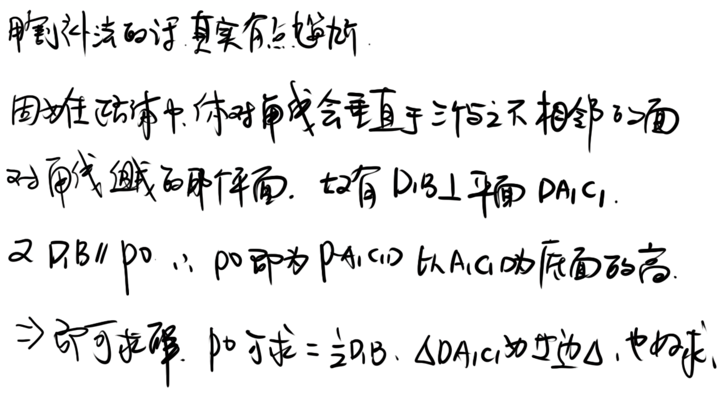 用割补法的话真实有点尴尬.
因为在正方体中,体对角线会垂直于三条与之不相邻的面
对角线组成的那个平面. 故有 D₁B⊥平面 DA₁C₁.
又 D₁B∥PO ∴ PO即为 P-A₁C₁D 以A₁C₁D为底面的高.
⇒ 即可求解. PO可求=½D₁B. △DA₁C₁为等边△,也好求.